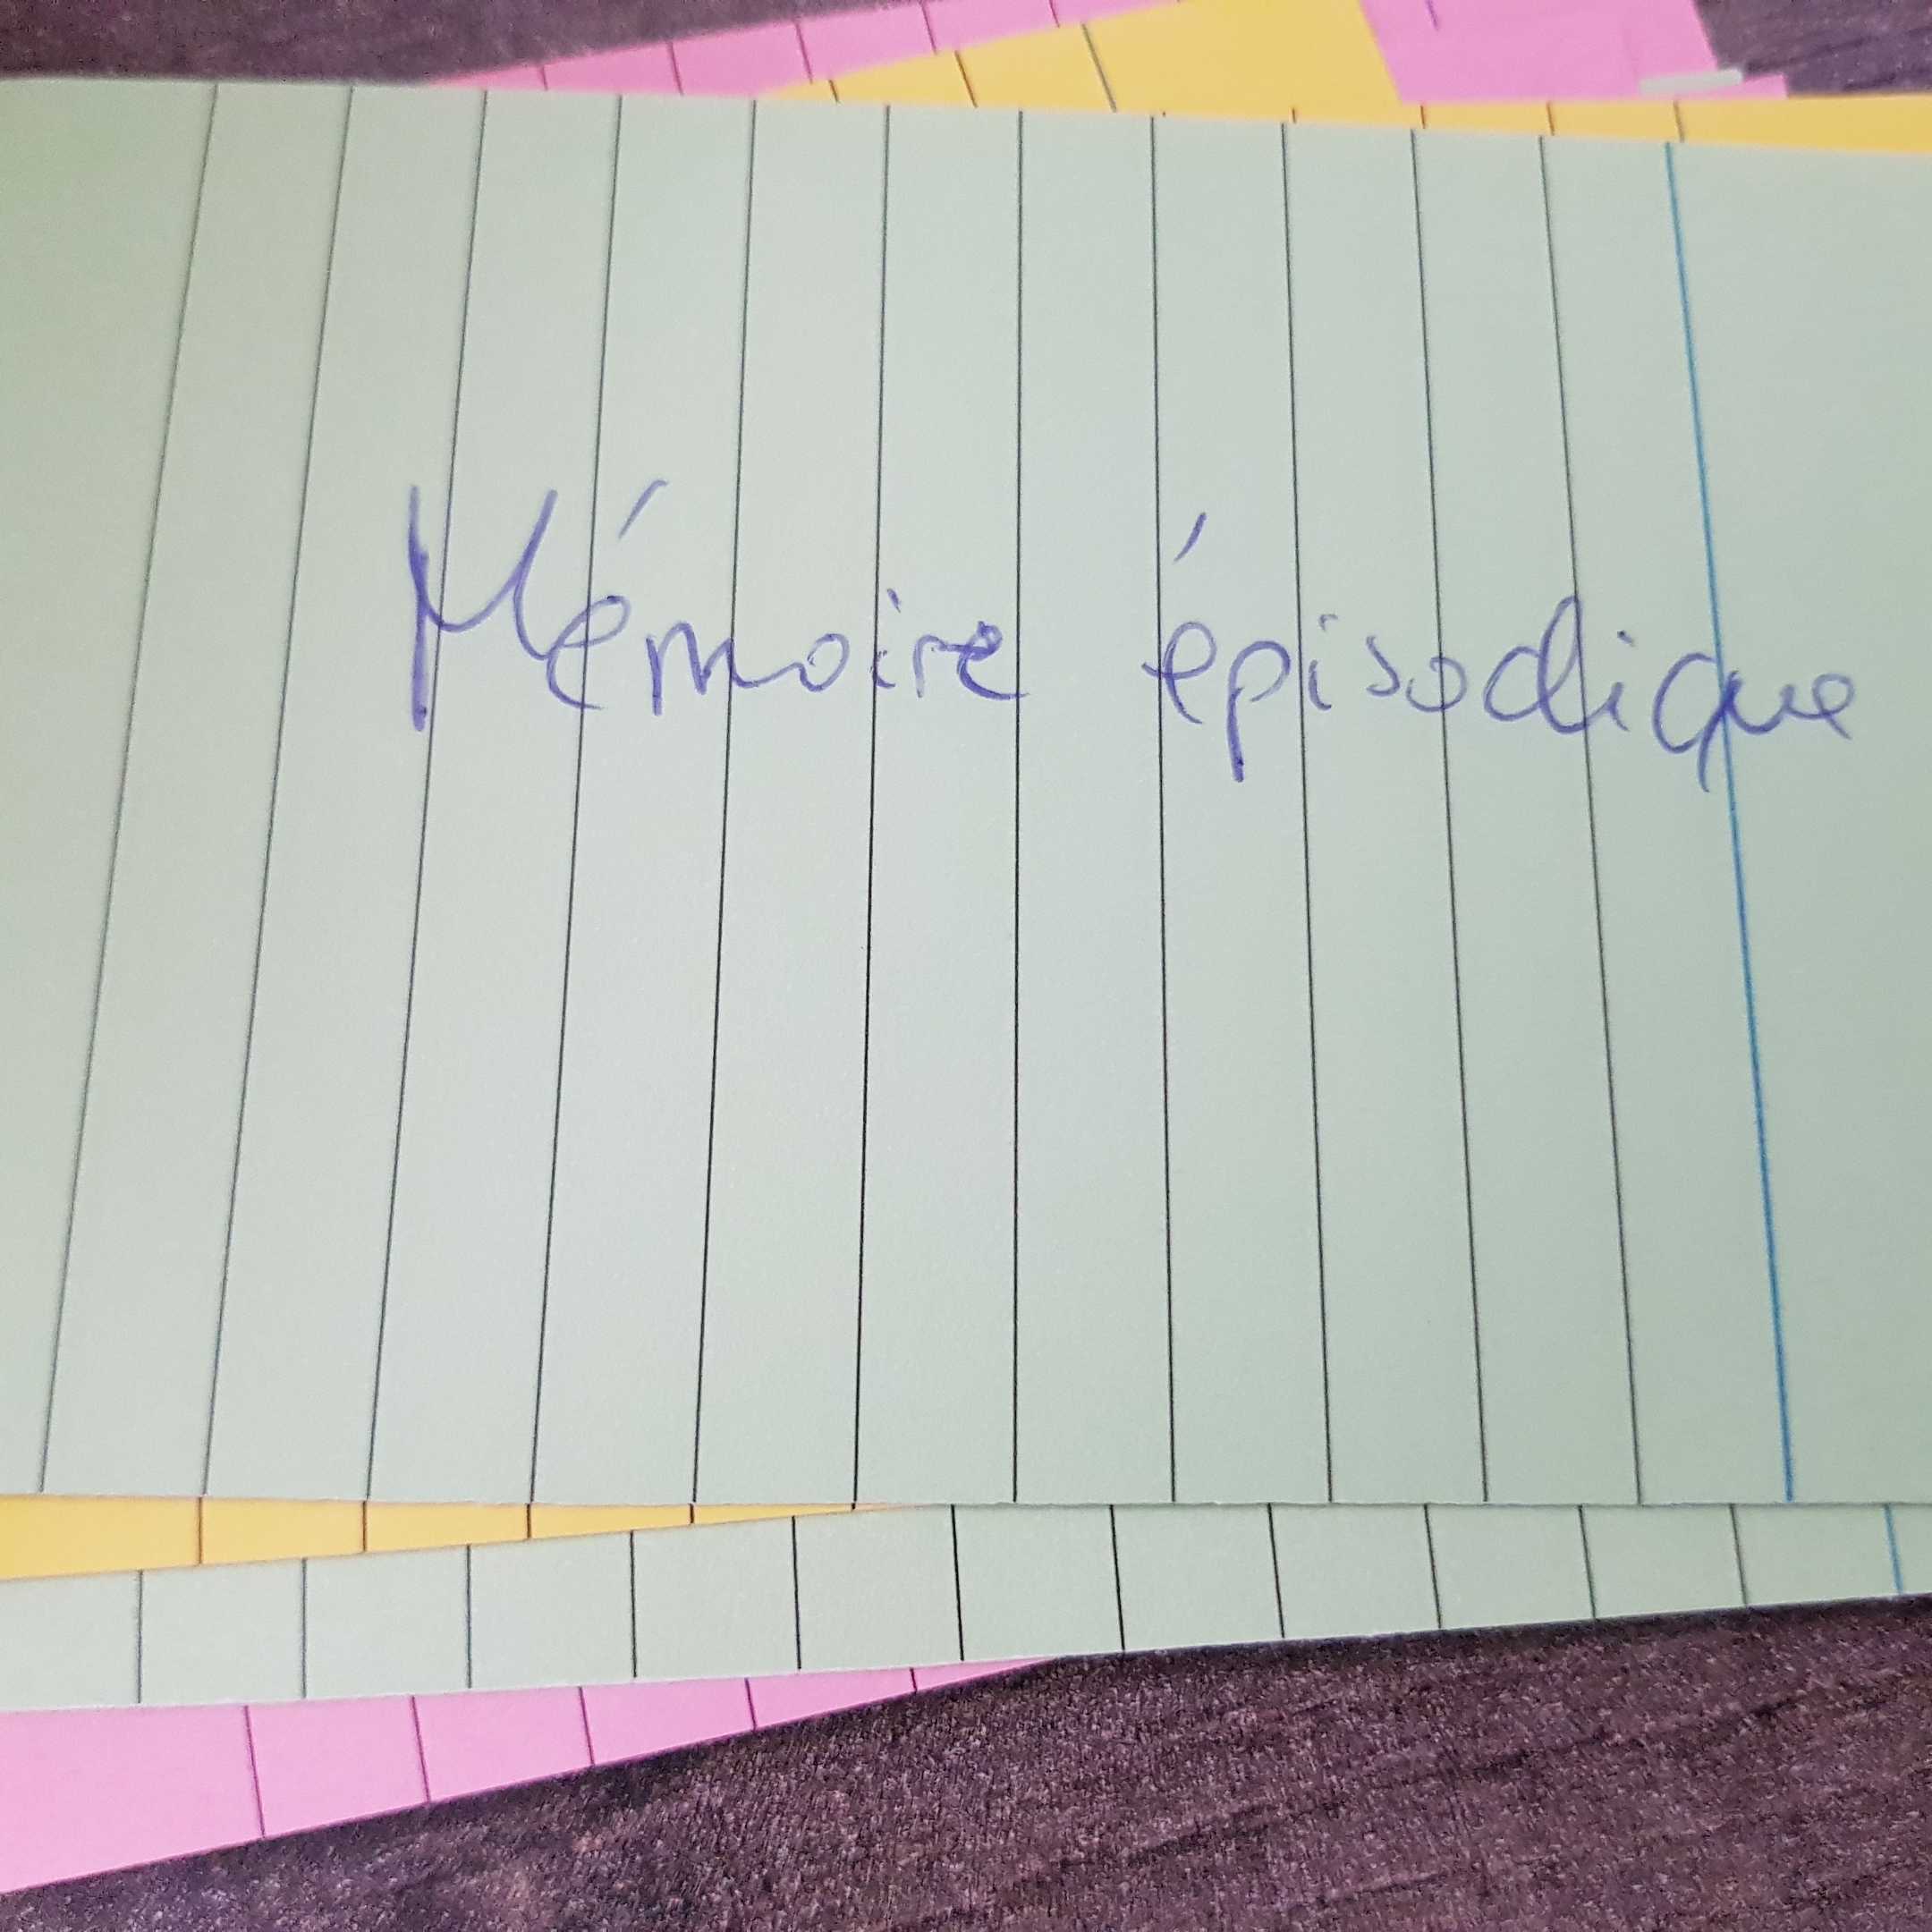 Mémoire épisodique